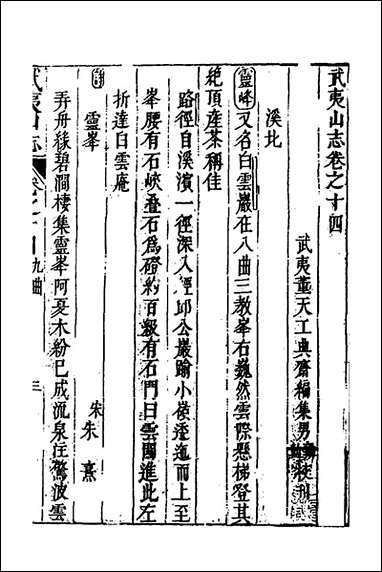 武夷山志卷之十四
武夷董天工典齋編集男
溪北
靈峰又名白雲巖在八曲三教峯右巍然雲際懸梯登其
絶頂産茶稱佳
路徑自溪濱一徑深入經邱公巖踰小嶺逶迤而上至
峯腰有石峽疊石爲磴約百級有石門曰雲關進此左
折達白雲庵
詩
靈峯
宋朱熹
弄舟緣碧澗棲集靈峯阿夏木紛已成流泉注驚波雲
武夷山志
九曲
三